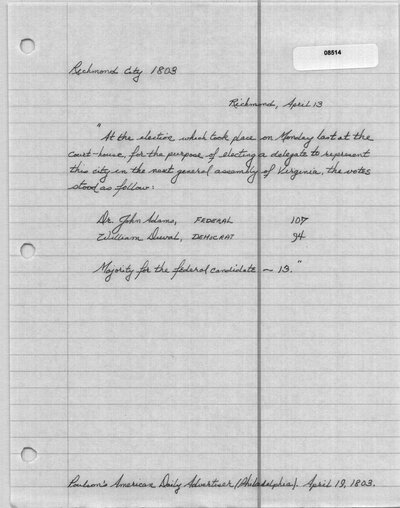 08514
Richmond City 1803
Richmond, April 13
"At the election which took place on Monday last at the
court-house, for the purpose of electing a delegate to represent
this city in the next general assembly of Virginia, the votes
stood as follow:
Dr. John Adams, FEDERAL 107
William Duval, DEMOCRAT 94
Majority for the federal candidate — 13."
Poulson's American Daily Advertiser (Philadelphia). April 19, 1803.